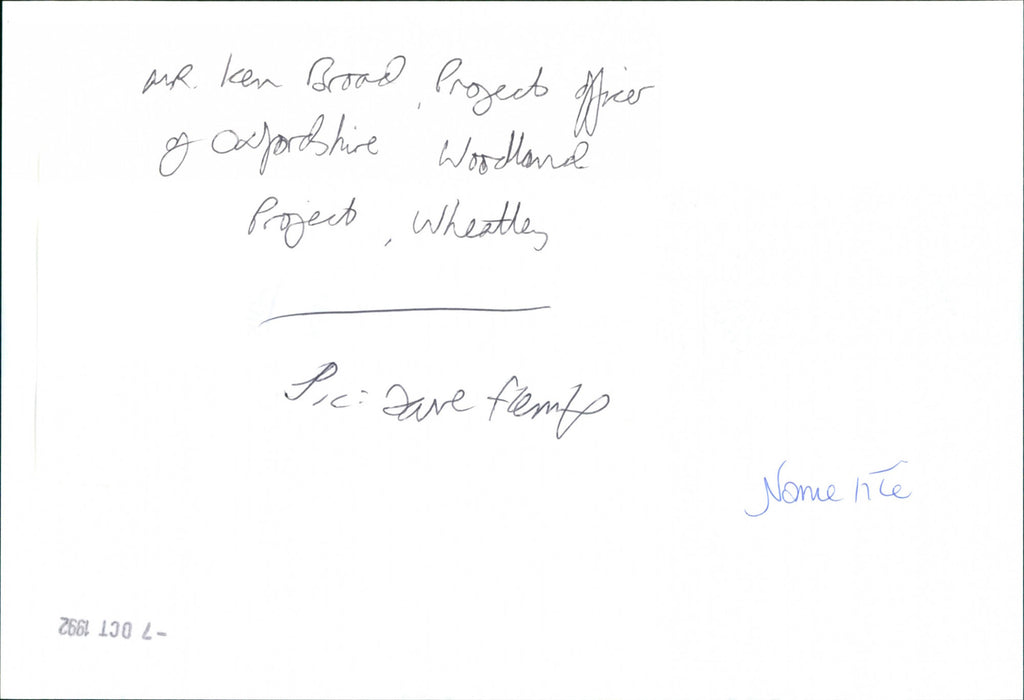 MR. Ken Broad, Project Officer
of Oxfordshire Woodland
Project, Wheatley
Pic: Dave Fleming
- 7 OCT 1992